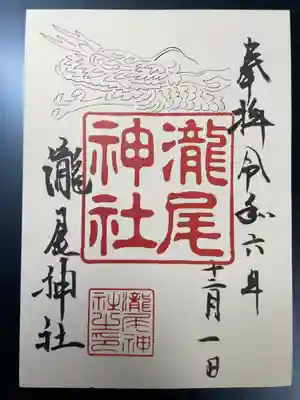 奉拝 令和六年
十二月一日
瀧尾
神社
瀧尾神社
瀧尾神
社之印